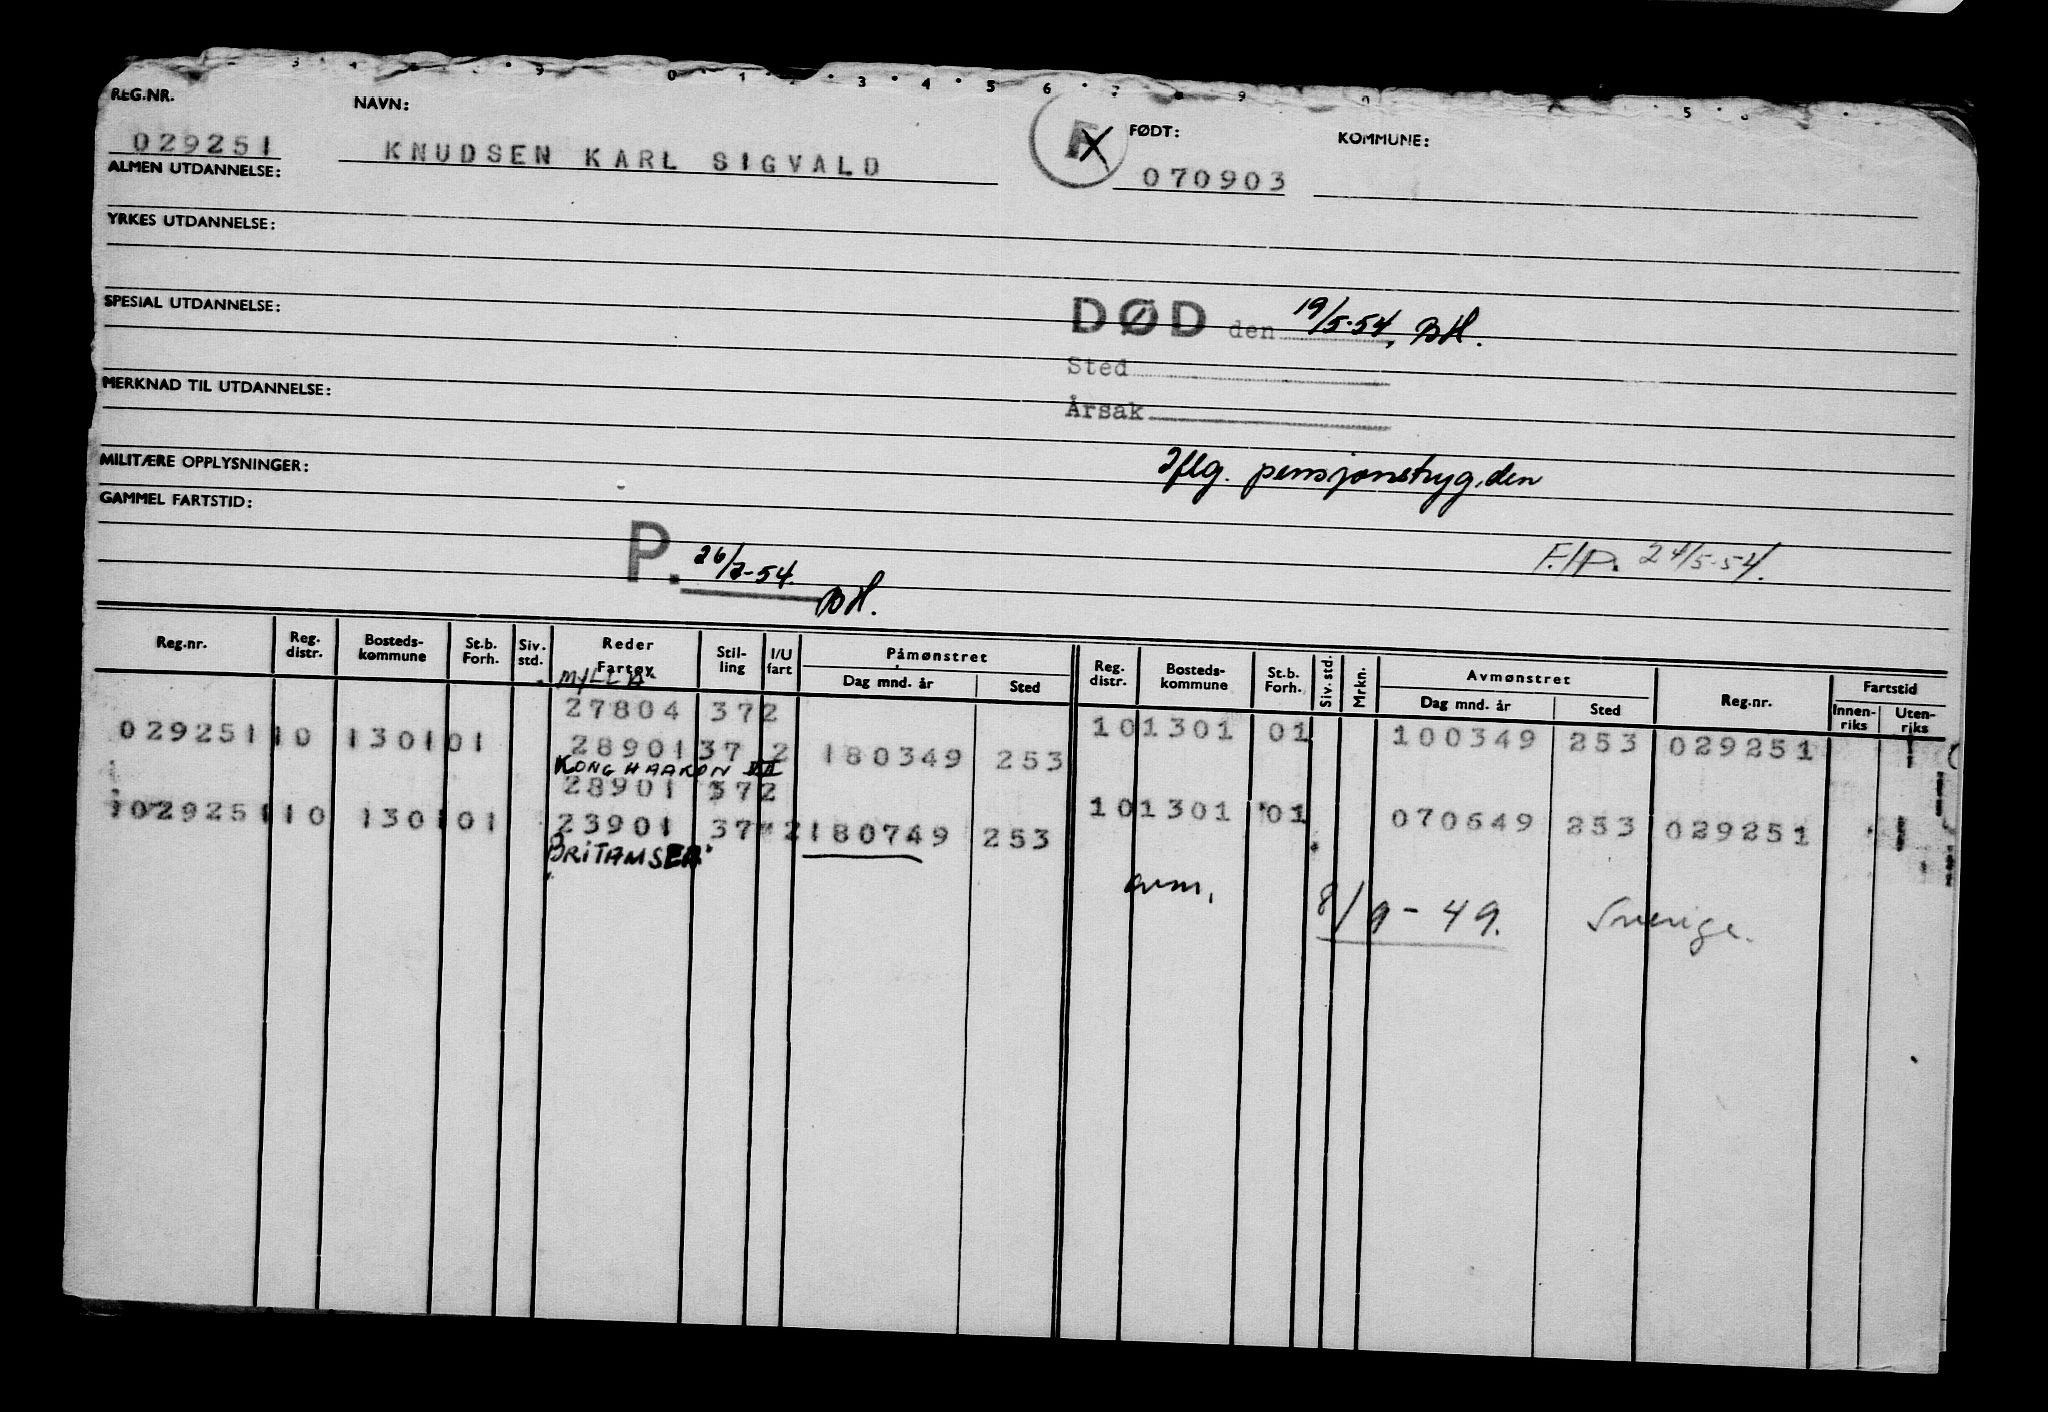 REG.NR. NAVN: FØDT: KOMMUNE:
029251 KNUDSEN KARL SIGVALD F X 070903
ALMEN UTDANNELSE:
YRKES UTDANNELSE:
SPESIAL UTDANNELSE:
DØD den 19/5-54, BH.
Sted
MERKNAD TIL UTDANNELSE:
Årsak
MILITÆRE OPPLYSNINGER:
Iflg. pensjonstryg.den
GAMMEL FARTSTID:
P. 26/7-54. BH.
F./P. 24/5-54.
Reg.nr. Reg. distr. Bosteds-kommune St.b. Forh. Siv. std. Reder Fartøy Stil-ling I/U fart Påmønstret Dag mnd. år Sted Reg. distr. Bosteds-kommune St.b. Forh. Siv. std. Mrkn. Avmønstret Dag mnd. år Sted Reg.nr. Fartstid Innen-riks Uten-riks
27804 372 101301 01 100349 253 029251
029251 10 1301 01 28901 37 2 180349 253
KONG HAAKON VII
28901 372 101301 01 070649 253 029251
029251 10 1301 01 23901 37 2 180749 253
BRITAMSEA
avm. 8/9-49. Sverige.